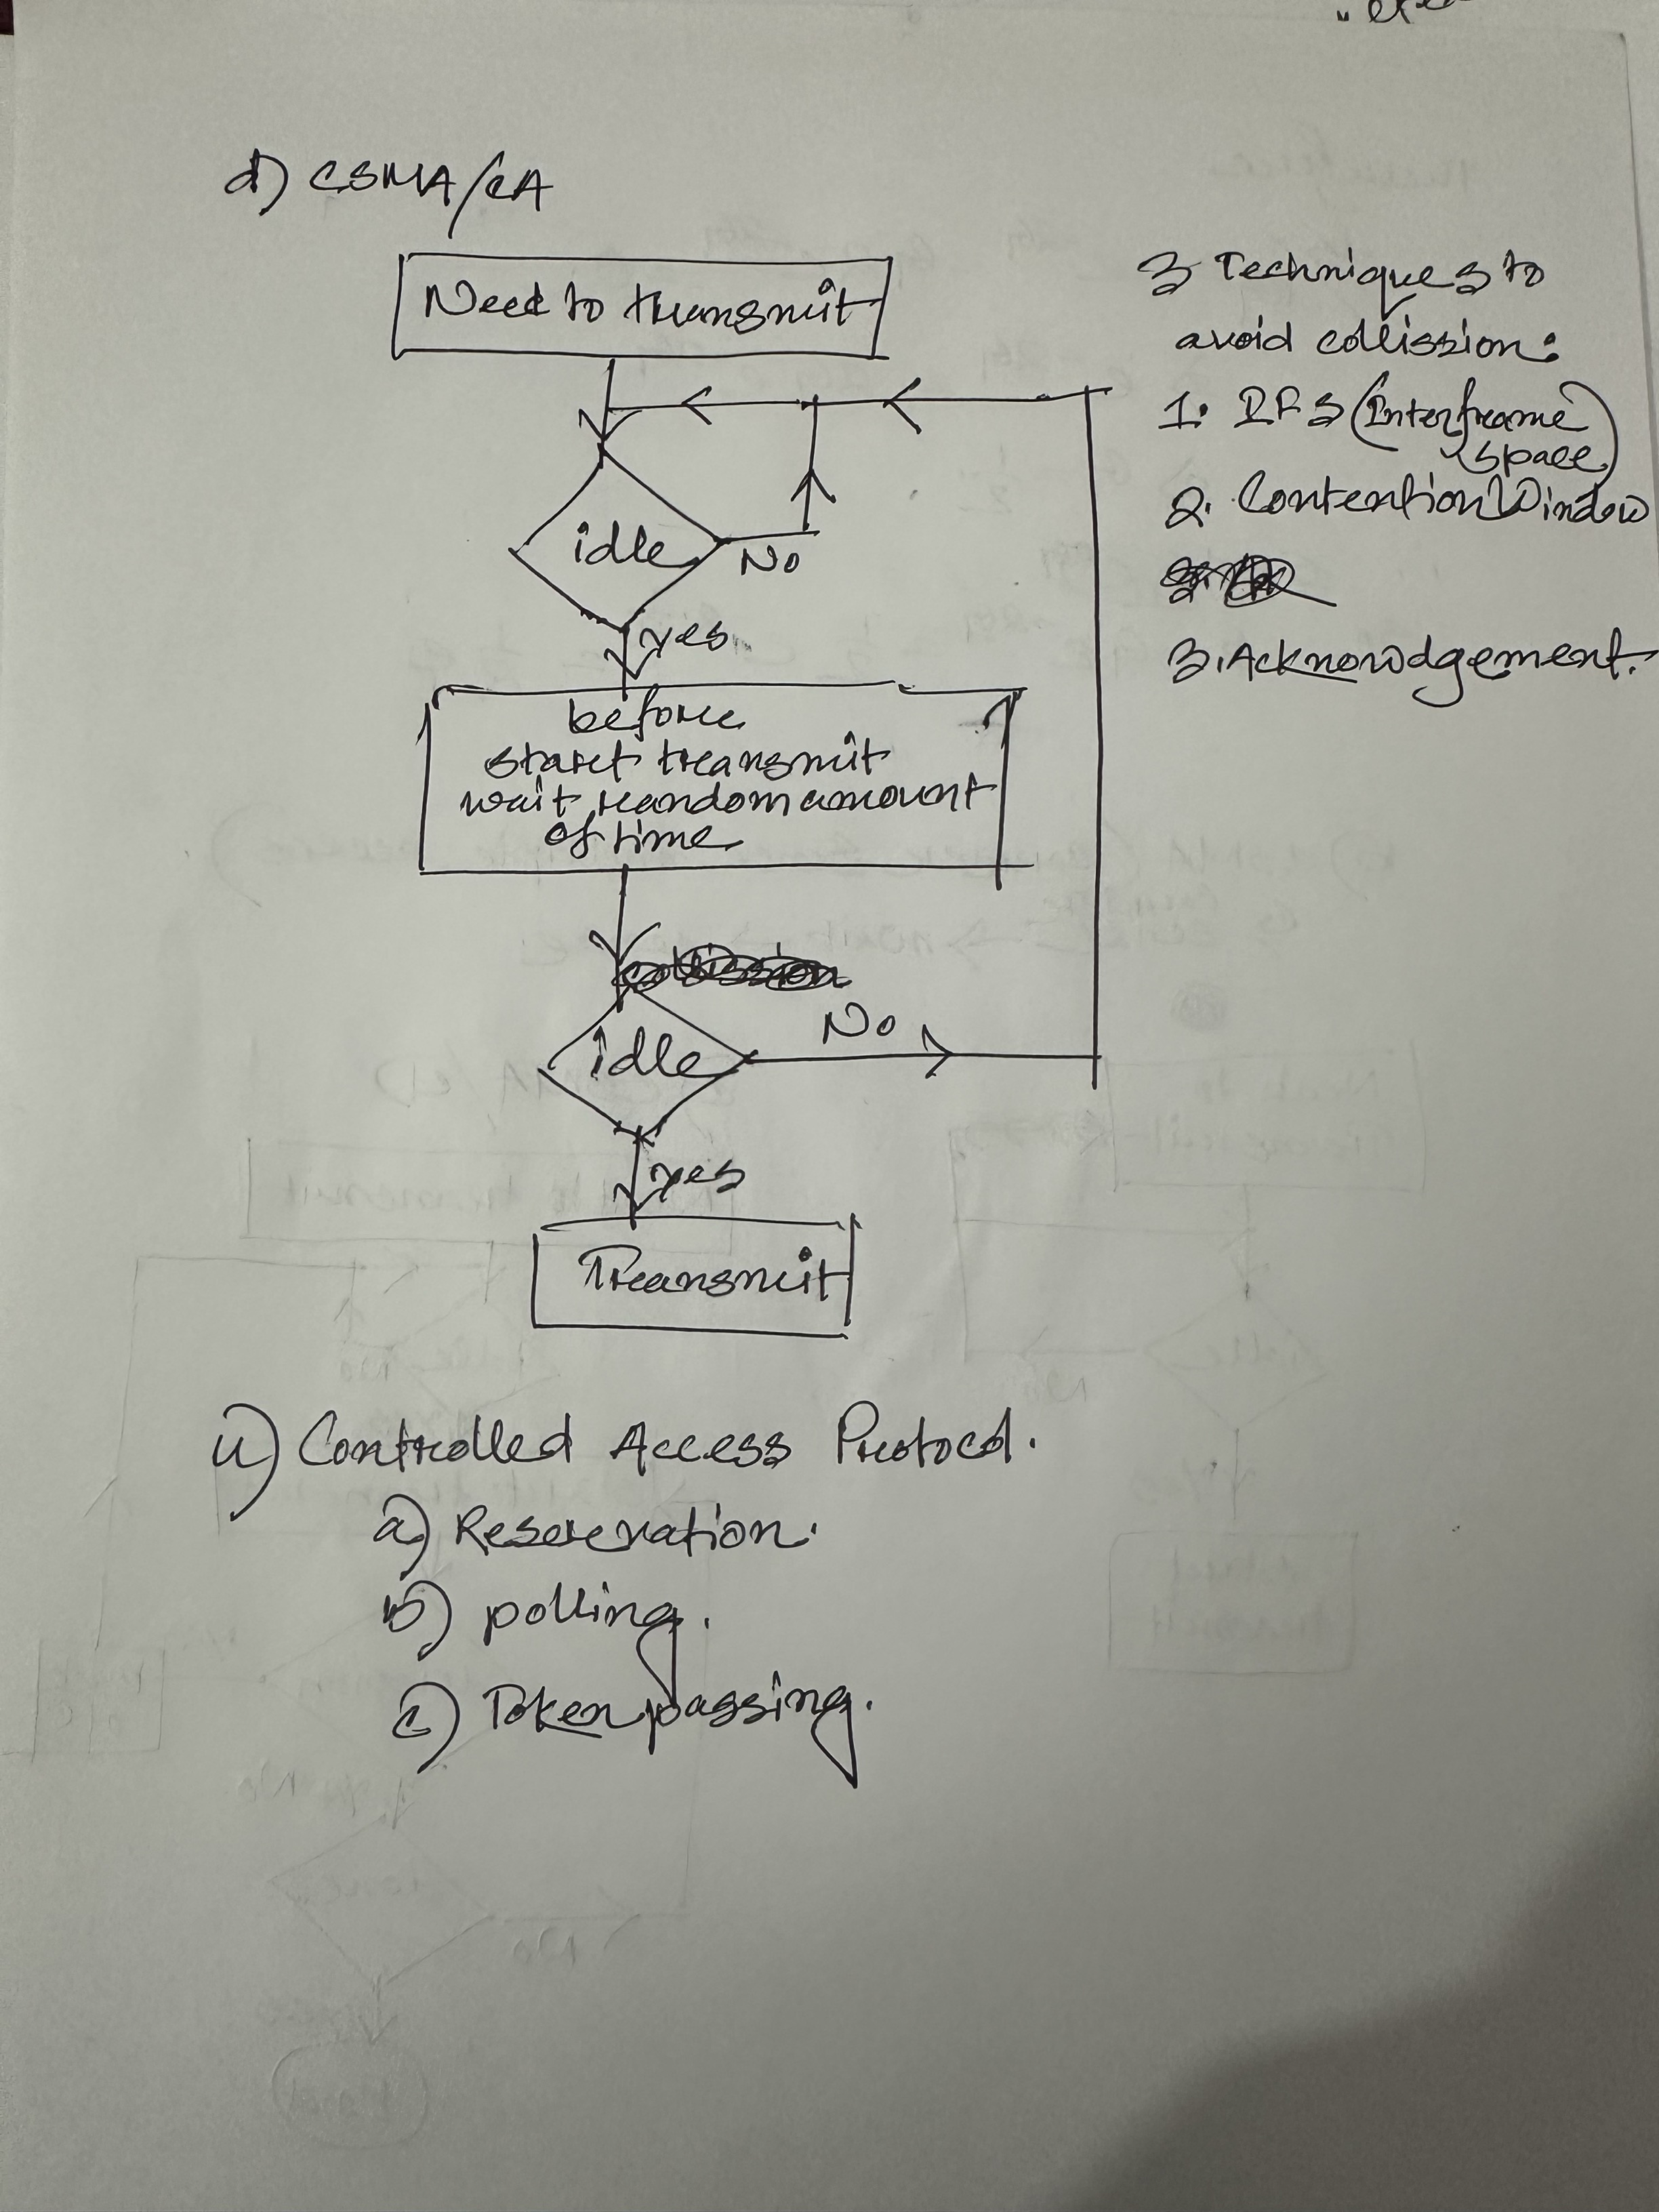 d) CSMA/CA
Need to transmit
idle
No
yes
before
start transmit
wait random amount
of time
No
idle
yes
Transmit
3 Techniques to
avoid collission:
1. IFS (Interframe
space)
2. Contention Window
3. Acknowdgement.
ii) Controlled Access Protocol.
a) Reservation.
b) polling.
c) Token passing.